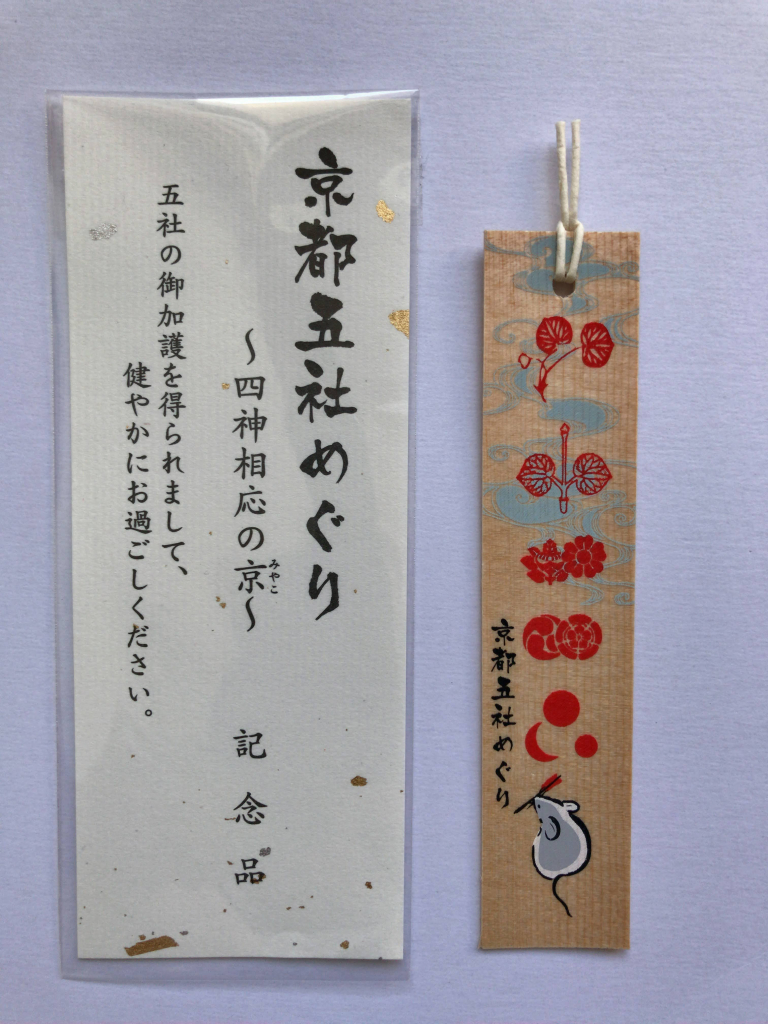 京都五社めぐり
～四神相応の京～
みやこ
記念品
五社の御加護を得られまして、
健やかにお過ごしください。
京都五社めぐり